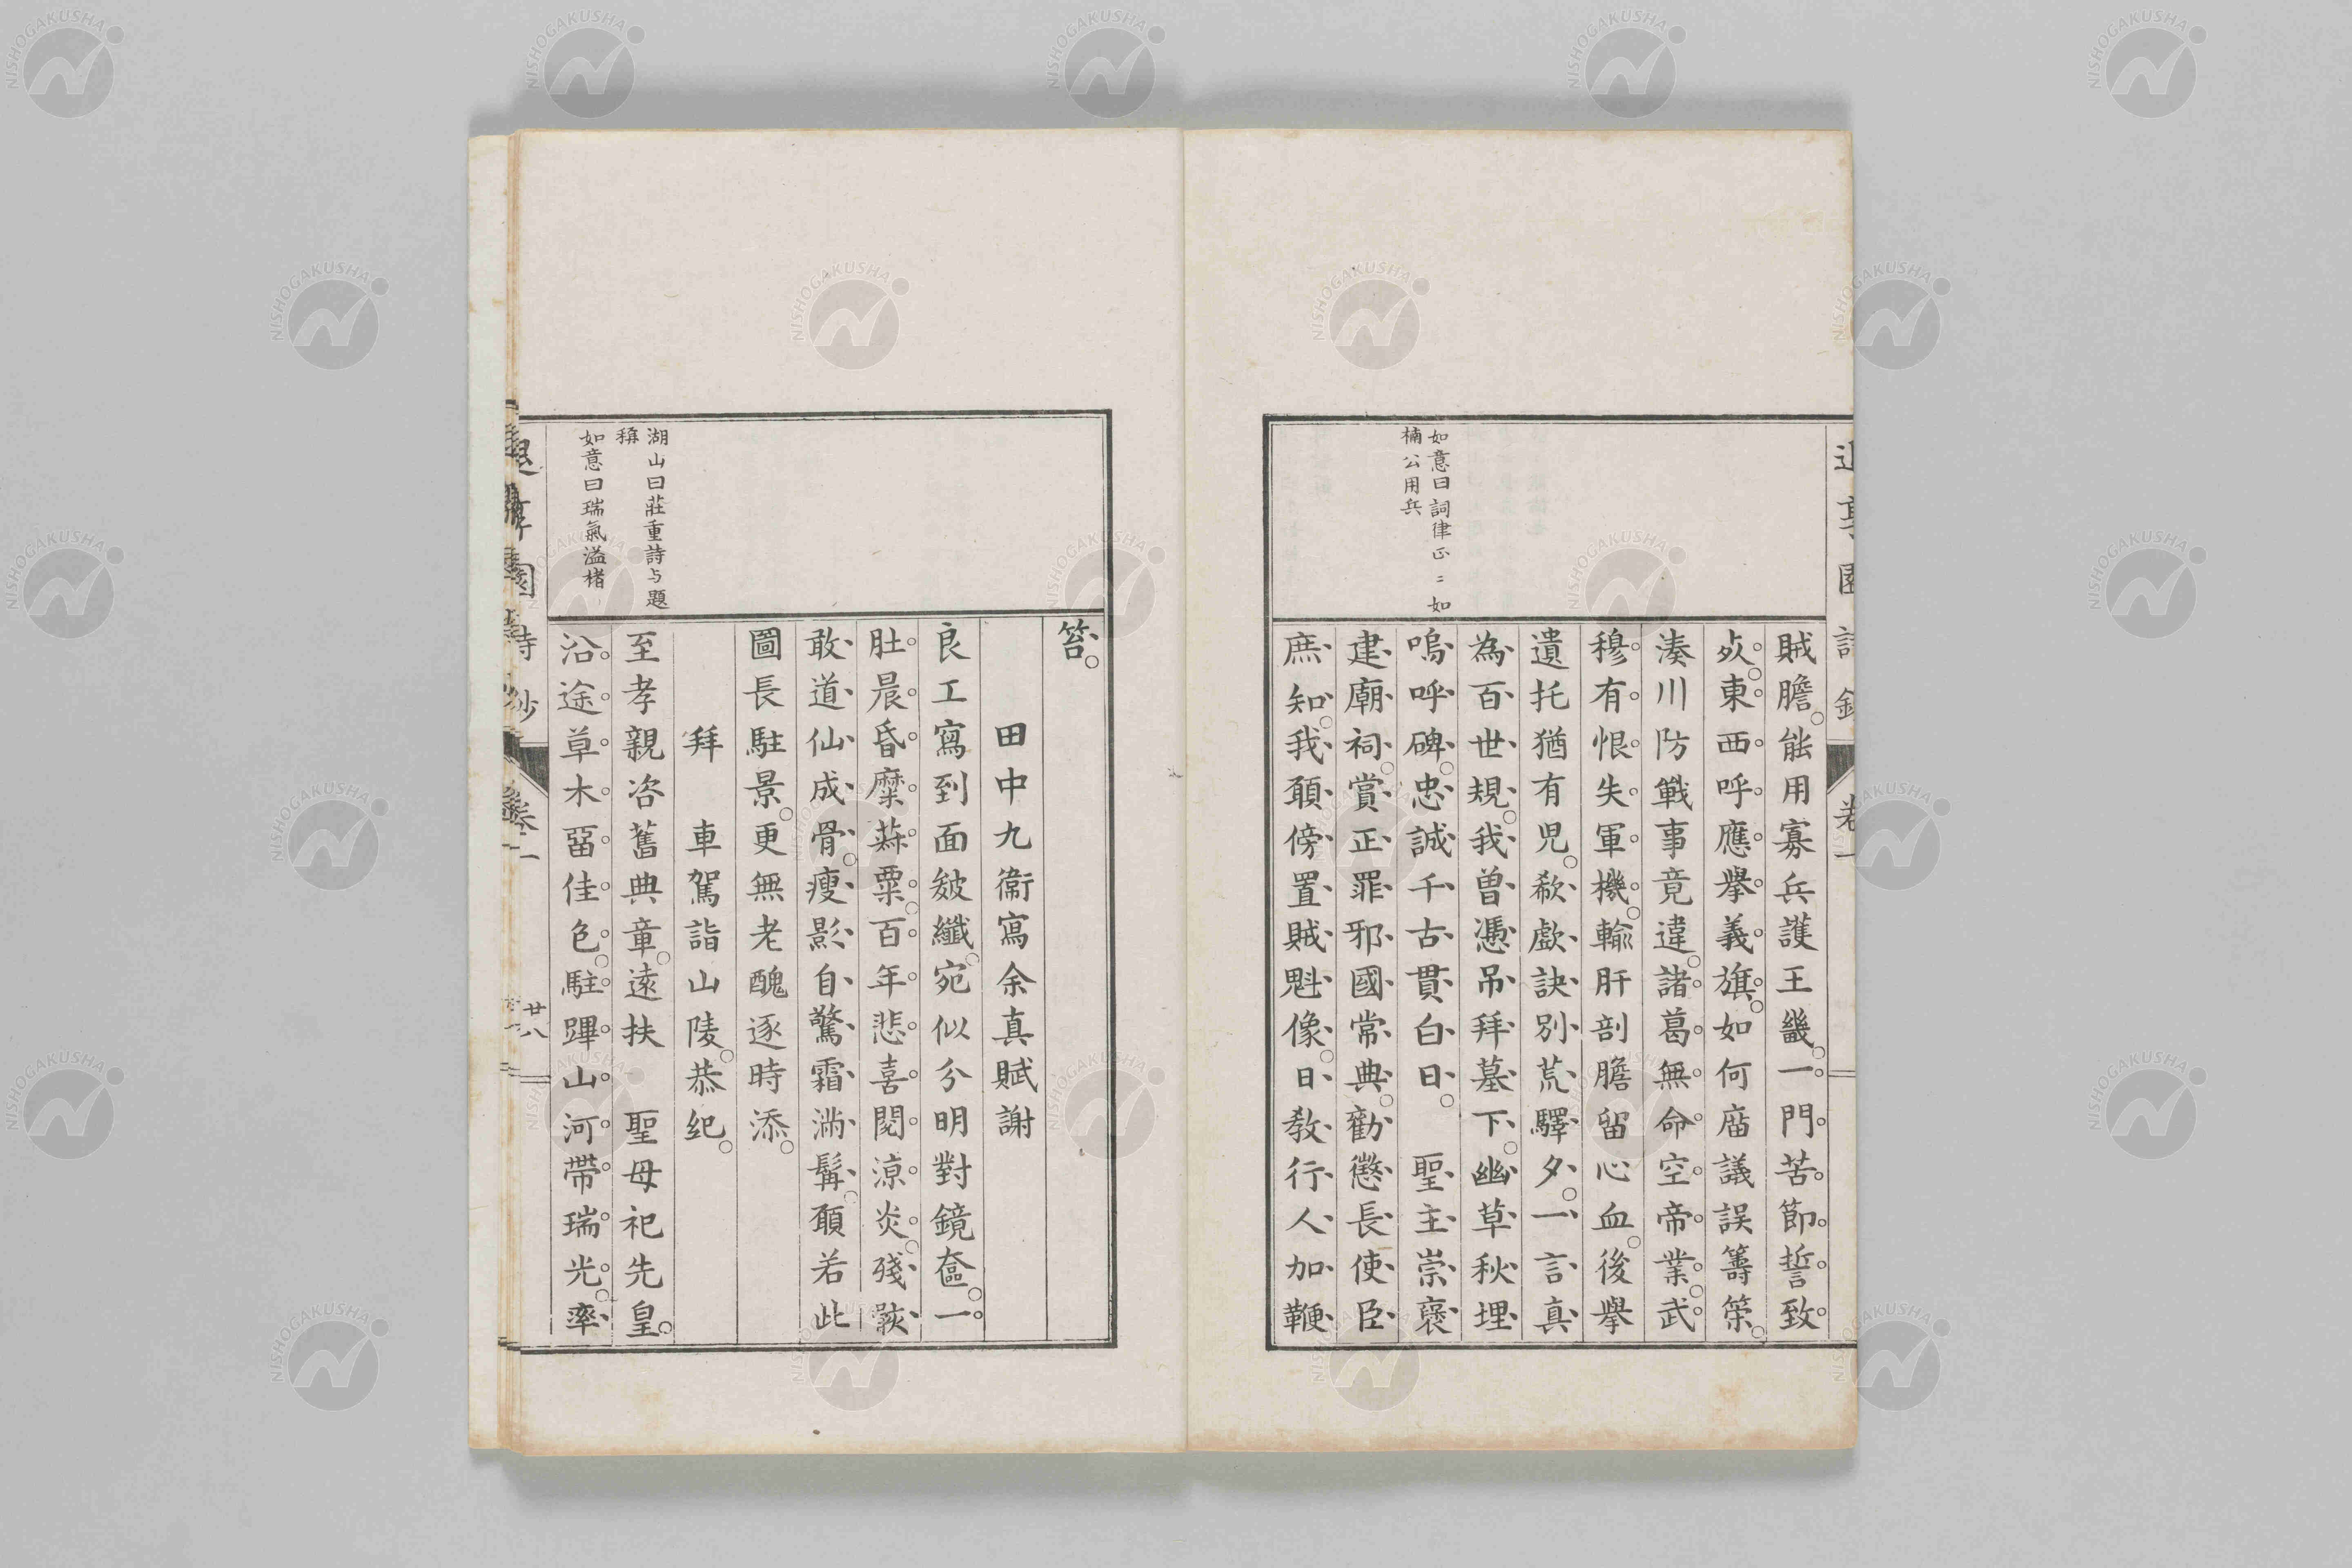 賊膽能用寡兵護王畿一門苦節誓致
死東西呼應擧義旗如何庿議誤籌策
湊川防戰事竟違諸葛無命空帝業武
穆有恨失軍機輸肝剖膽留心血後擧
遺托猶有兒欷歔訣別荒驛夕一言真
為百世規我曾憑吊拜墓下幽草秋埋
嗚呼碑忠誠千古貫白日　聖主崇褒
建廟祠賞正罪邪國常典勸懲長使臣
庶知我願傍置賊魁像日教行人加鞭
笞
如意曰詞律正〻如
楠公用兵
田中九衞寫余真賦謝
良工寫到面皴纖宛似分明對鏡奩一
肚晨昏糜菽粟百年悲喜閱涼炎殘
敢道仙成骨瘦影自驚霜滿髯願若此
圖長駐景更無老醜逐時添
拜　車駕詣山陵恭紀
至孝親咨舊典章遠扶　聖母祀先皇
沿途草木留佳色駐蹕山河帶瑞光率
湖山曰莊重詩与題
稱
如意曰瑞氣溢楮
園詩鈔
卷一
廿八
NISHOGAKUSHA